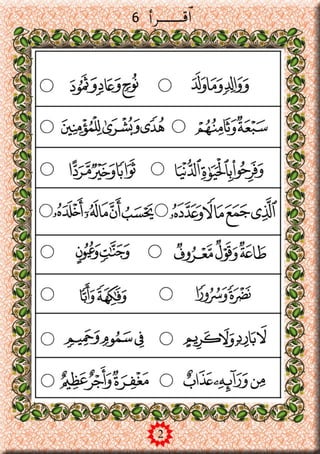 ٱقــرأ 6
وَوَالِدٍ وَمَا وَلَدَ ○ نُوحٍ وَعَادٍ وَثَمُودَ ○
سَبْعَةٌ وَثَامِنُهُمْ ○ هُدًى وَبُشْرَىٰ لِلْمُؤْمِنِينَ ○
وَفَرِحُوا۟ بِٱلْحَيَوٰةِ ٱلدُّنْيَا ○ ثَوَابًا وَخَيْرٌ مَّرَدًّا ○
ٱلَّذِى جَمَعَ مَالًا وَعَدَّدَهُۥ ○ يَحْسَبُ أَنَّ مَالَهُۥٓ أَخْلَدَهُۥ ○
طَاعَةٌ وَقَوْلٌ مَّعْرُوفٌ ○ جَنَّـٰتٍ وَعُيُونٍ ○
نَضْرَةً وَسُرُورًا ○ وَفَـٰكِهَةً وَأَبًّا ○
لَا بَارِدٍ وَلَا كَرِيمٍ ○ فِى سَمُومٍ وَحَمِيمٍ ○
مِن وَرَآئِهِۦ عَذَابٌ ○ مَغْفِرَةٌ وَأَجْرٌ عَظِيمٌ ○
2